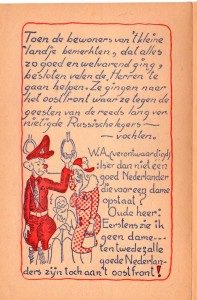 Toen de bewoners van 't kleine
landje bemerkten, dat alles
zo goed en welvarend ging,
besloten velen de Herren te
gaan helpen. Ze gingen naar
het oostfront waar ze legen de
geesten van de reeds lang ver-
nietigde Russische legers -
vochten.
W.A. (verontwaardigd)
: Is er dan niet een
goed Nederlander
die voor een dame
opstaat?
Oude heer:
Eerstens zie ik
geen dame---
ten tweede: alle
goede Nederlan-
ders zijn toch aan 't oostfront!